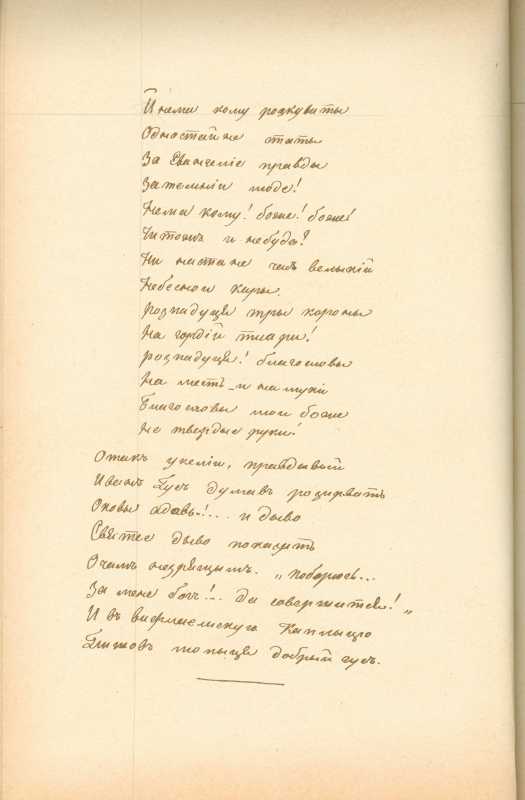 И нема кому розкуваты
Одностайне статы
За Евангеліе правды
За темніи люде!
Нема кому! боже! боже!
Чи тожъ и небуде?
Ни настане часъ велыкій
Небесной кары.
Розпадуця тры короны
На гордій тіари!
розпадуця! благословы
На месть и на муки
Благословы мои боже
Не твердые руки!
Отакъ у келіи, правдывый
Иванъ Гусъ думавъ розирвать
Оковы адовы!... и дыво
Святее дыво показать
Очамъ незрящимъ. „поборюсь...
За мене богъ!.. да совершится!„
И въ вифлиемскую каплыцю
Пишовъ молыця добрый гусъ.